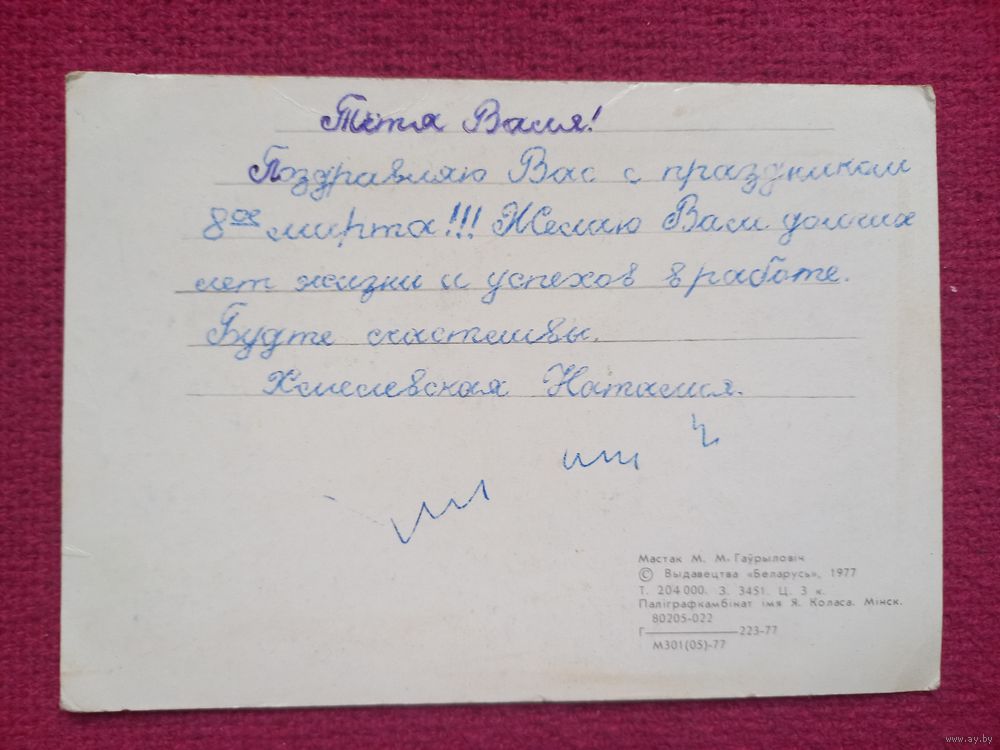 Тётя Валя!
Поздравляю Вас с праздником
8ое марта!!! Желаю Вам долгих
лет жизни и успехов в работе.
Будте счастливы.
Хмелевская Наталия.
Мастак М. М. Гаўрыловіч
© Выдавецтва «Беларусь», 1977
Т. 204 000. З. 3451. Ц. 3 к.
Паліграфкамбінат імя Я. Коласа. Мінск.
80205-022
Г————223-77
М301(05)-77
www.ay.by